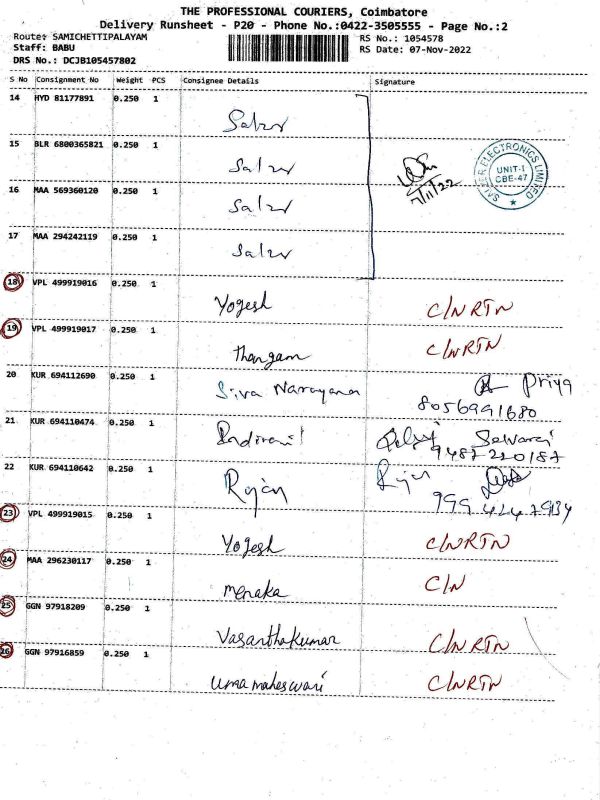 THE PROFESSIONAL COURIERS, Coimbatore
Delivery Runsheet - P20 - Phone No.:0422-3505555 - Page No.:2
Route: SAMICHETTIPALAYAM
Staff: BABU
DRS No.: DCJB105457802
RS No.: 1054578
RS Date: 07-Nov-2022
S No Consignment No Weight PCS Consignee Details Signature
14 HYD 81177891 0.250 1
Salzr
15 BLR 6800365821 0.250 1
Salzr
16 MAA 569360120 0.250 1
Salzr
17 MAA 294242119 0.250 1
Salzr
7/11/22
SALZER ELECTRONICS LIMITED
UNIT-I
CBE-47
18 VPL 499919016 0.250 1
Yogesh C/NRTN
19 VPL 499919017 0.250 1
Thangam C/NRTN
20 KUR 694112690 0.250 1
Siva Narayanan Priya
8056991680
21 KUR 694110474 0.250 1
Selvaraj
9487220187
22 KUR 694110642 0.250 1
Rajan Rajan
23 VPL 499919015 0.250 1
Yogesh C/NRTN
24 MAA 296230117 0.250 1
Menaka C/N
25 GGN 97918209 0.250 1
Vasanthakumar C/NRTN
26 GGN 97916859 0.250 1
Uma maheswari C/NRTN